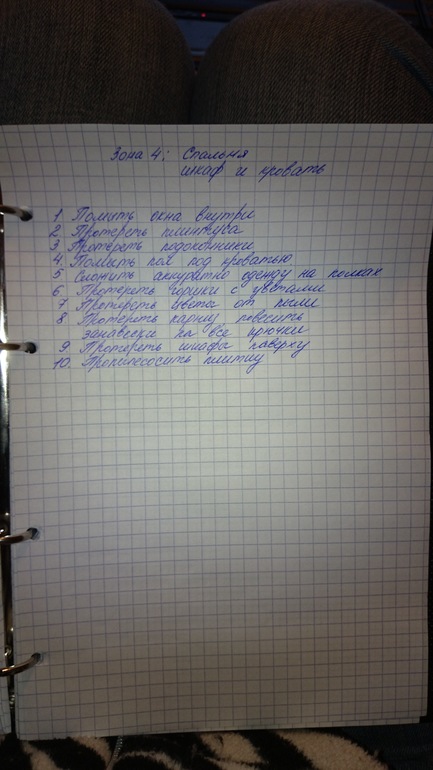 Зона 4: Спальня
шкаф и кровать
1 Помыть окна внутри
2 Протереть плинтуса
3 Протереть подоконники
4. Помыть пол под кроватью
5 Сложить аккуратно одежду на полках
6 Протереть горшки с цветами
7 Протереть цветы от пыли
8 Протереть карниз повесить
занавески на все крючки
9. Протереть шкафы поверху
10. Пропылесосить плитку